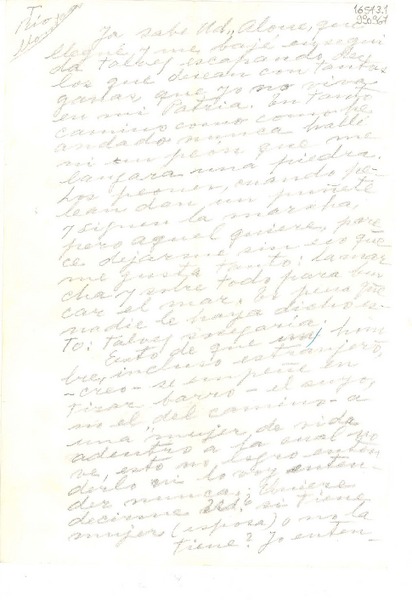 16513.1
990967
Ya sabe Ud., Alone, que
llegué y me bajé en segui
da talvez escapando de
los que desean con tantas
ganas, que yo no viva
en mi Patria. En tanto
camino como como he
andado nunca hallé
ni un peón que me
lanzara una piedra.
Los peones, cuando pe
lean dan un puñete
y siguen la marcha,
pero aquel quiere, pare
ce dejarme sin eso que
me gusta tanto: la mar
cha y sobre todo para bus
car el mar. Es pena que
nadie le haya dicho es-
to: talvez
Esto de que un hom
bre, incluso extranjero,
-creo- se empeñe en
tirar barro - el suyo,
no el del camino - a
una mujer de vida
adentro a la cual no
ve, esto no logro enten
derlo ni lo voy a enten-
der nunca. Quiere
decirme Ud. si tiene
mujer (esposa) o no la
tiene? Yo enten-